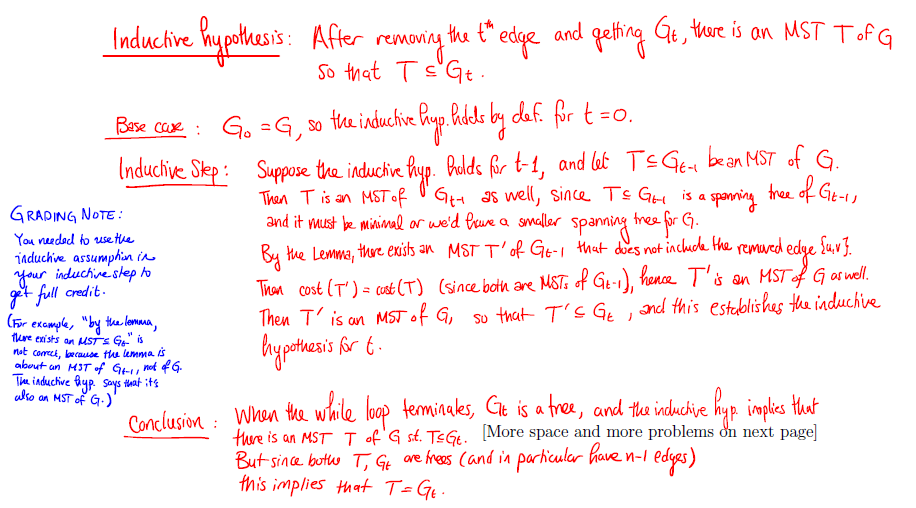 Inductive hypothesis: After removing the tᵗʰ edge and getting Gₜ, there is an MST T of G
so that T ⊆ Gₜ.
Base case : G₀ = G, so the inductive hyp. holds by def. for t=0.
Inductive Step : Suppose the inductive hyp. holds for t-1, and let T ⊆ Gₜ₋₁ be an MST of G.
Then T is an MST of Gₜ₋₁ as well, since T ⊆ Gₜ₋₁ is a spanning tree of Gₜ₋₁,
and it must be minimal or we'd have a smaller spanning tree for G.
By the Lemma, there exists an MST T' of Gₜ₋₁ that does not include the removed edge {u,v}.
Then cost(T') = cost(T) (since both are MSTs of Gₜ₋₁), hence T' is an MST of G as well.
Then T' is an MST of G, so that T' ⊆ Gₜ, and this establishes the inductive
hypothesis for t.
GRADING NOTE:
You needed to use the
inductive assumption in
your inductive step to
get full credit.
(For example, "by the lemma,
there exists an MST ⊆ Gₜ" is
not correct, because the lemma is
about an MST of Gₜ₋₁, not of G.
The inductive hyp. says that it's
also an MST of G.)
Conclusion : When the while loop terminates, Gₜ is a tree, and the inductive hyp. implies that
there is an MST T of G s.t. T⊆Gₜ. [More space and more problems on next page]
But since both T, Gₜ are trees (and in particular have n-1 edges)
this implies that T=Gₜ.